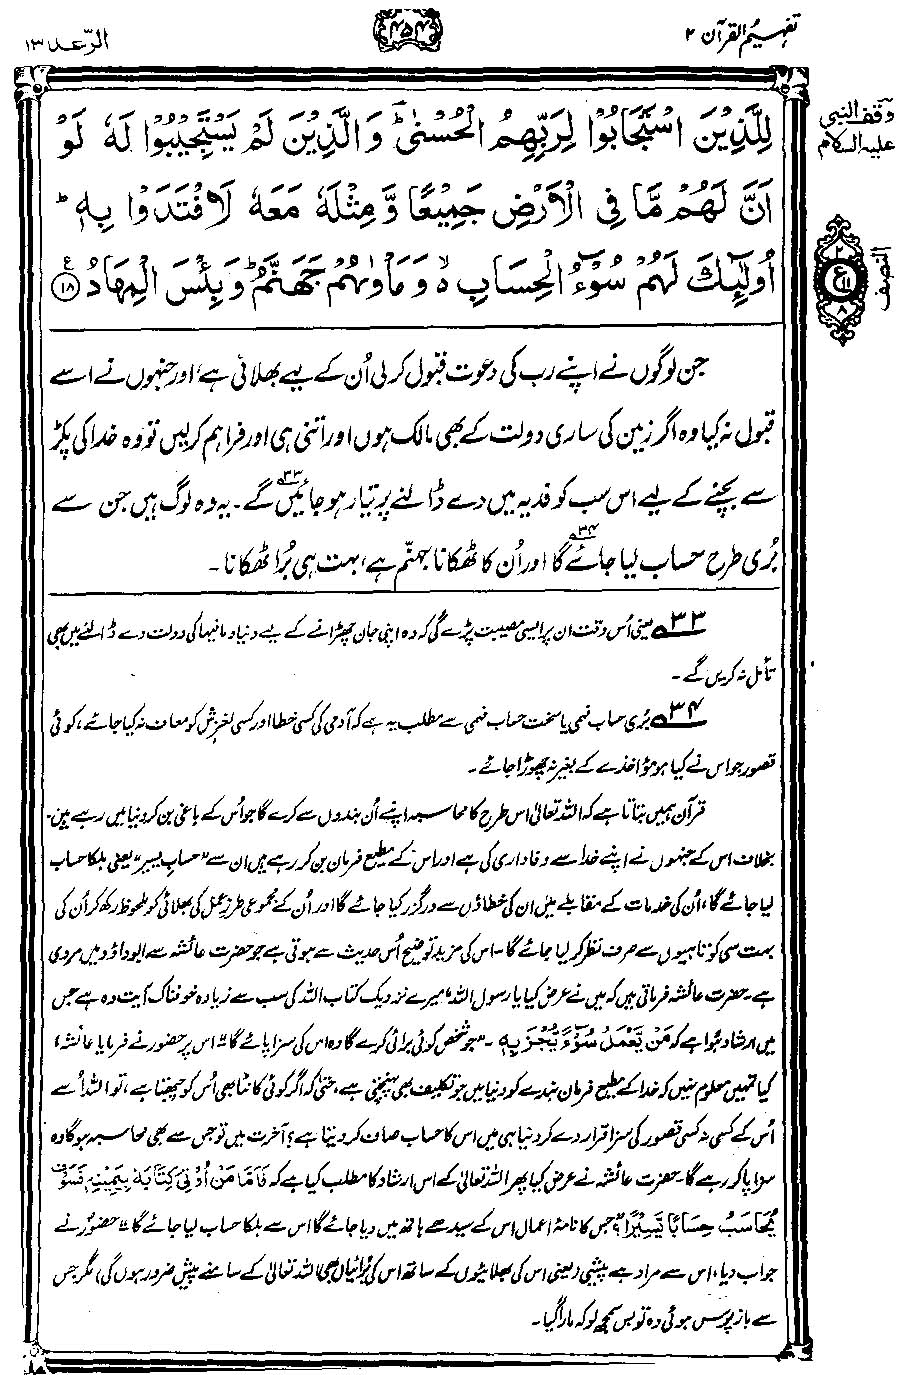 تفہیم القرآن ۲
۴۵۴
الرّعد ۱۳
وقف النبی
علیہ السلام
لِلَّذِیْنَ اسْتَجَابُوْا لِرَبِّهِمُ الْحُسْنٰیؕ وَالَّذِیْنَ لَمْ یَسْتَجِیْبُوْا لَهٗ لَوْ
اَنَّ لَهُمْ مَّا فِی الْاَرْضِ جَمِیْعًا وَّمِثْلَهٗ مَعَهٗ لَافْتَدَوْا بِهٖؕ
اُولٰٓئِكَ لَهُمْ سُوْٓءُ الْحِسَابِ ۙ۬ وَمَاْوٰىهُمْ جَهَنَّمُؕ وَبِئْسَ الْمِهَادُ ﴿۱۸﴾
النصف
۲
ع
۱۱
۸
جن لوگوں نے اپنے رب کی دعوت قبول کر لی اُن کے لیے بھلائی ہے، اور جنہوں نے اسے
قبول نہ کیا وہ اگر زمین کی ساری دولت کے بھی مالک ہوں اور اتنی ہی اور فراہم کر لیں تو وہ خدا کی پکڑ
سے بچنے کے لیے اس سب کو فدیہ میں دے ڈالنے پر تیار ہو جائیں۳۳ گے۔ یہ وہ لوگ ہیں جن سے
بُری طرح حساب لیا جائے۳۴ گا اور اُن کا ٹھکانا جہنّم ہے، بہت ہی بُرا ٹھکانا۔
۳۳ یعنی اُس وقت ان پر ایسی مصیبت پڑے گی کہ وہ اپنی جان چھڑانے کے لیے دنیا و مافیہا کی دولت دے ڈالنے میں بھی
تأمل نہ کریں گے۔
۳۴ بُری حساب فہمی یا سخت حساب فہمی سے مطلب یہ ہے کہ آدمی کی کسی خطا اور کسی لغزش کو معاف نہ کیا جائے، کوئی
قصور جو اس نے کیا ہو مؤاخذے کے بغیر نہ چھوڑا جائے۔
قرآن ہمیں بتاتا ہے کہ اللہ تعالیٰ اس طرح کا محاسبہ اپنے اُن بندوں سے کرے گا جو اُس کے باغی بن کر دنیا میں رہے ہیں۔
بخلاف اس کے جنہوں نے اپنے خدا سے وفاداری کی ہے اور اس کے مطیع فرمان بن کر رہے ہیں ان سے "حساب یسیر" یعنی ہلکا حساب
لیا جائے گا، اُن کی خدمات کے مقابلے میں ان کی خطاؤں سے درگزر کیا جائے گا اور اُن کے مجموعی طرز عمل کی بھلائی کو ملحوظ رکھ کر اُن کی
بہت سی کوتاہیوں سے صرف نظر کر لیا جائے گا۔ اس کی مزید توضیح اُس حدیث سے ہوتی ہے جو حضرت عائشہ سے ابوداؤد میں مروی
ہے۔ حضرت عائشہ فرماتی ہیں کہ میں نے عرض کیا یا رسول اللہ "میرے نزدیک کتاب اللہ کی سب سے زیادہ خوفناک آیت وہ ہے جس
میں ارشاد ہوا ہے کہ مَنْ یَّعْمَلْ سُوْٓءًا یُّجْزَ بِهٖ ۔ "جو شخص کوئی برائی کرے گا وہ اس کی سزا پائے گا" اس پر حضور نے فرمایا عائشہ!
کیا تمہیں معلوم نہیں کہ خدا کے مطیع فرمان بندے کو دنیا میں جو تکلیف بھی پہنچتی ہے، حتیٰ کہ اگر کوئی کانٹا بھی اُس کو چبھتا ہے، تو اللہ اُسے
اُس کے کسی نہ کسی قصور کی سزا قرار دے کر دنیا ہی میں اس کا حساب صاف کر دیتا ہے؟ آخرت میں تو جس سے بھی محاسبہ ہو گا وہ
سزا پا کر رہے گا۔ حضرت عائشہ نے عرض کیا پھر اللہ تعالیٰ کے اس ارشاد کا مطلب کیا ہے کہ فَاَمَّا مَنْ اُوْتِیَ كِتَابَهٗ بِیَمِیْنِهٖ فَسَوْفَ
یُحَاسَبُ حِسَابًا یَّسِیْرًا؟ "جس کا نامۂ اعمال اس کے سیدھے ہاتھ میں دیا جائے گا اس سے ہلکا حساب لیا جائے گا" حضور نے
جواب دیا، اس سے مراد ہے پیشی (یعنی اس کی بھلائیوں کے ساتھ اس کی برائیاں بھی) اللہ تعالیٰ کے سامنے پیش ضرور ہوں گی، مگر جس
سے بازپرس ہوئی وہ تو بس سمجھ لو کہ مارا گیا۔